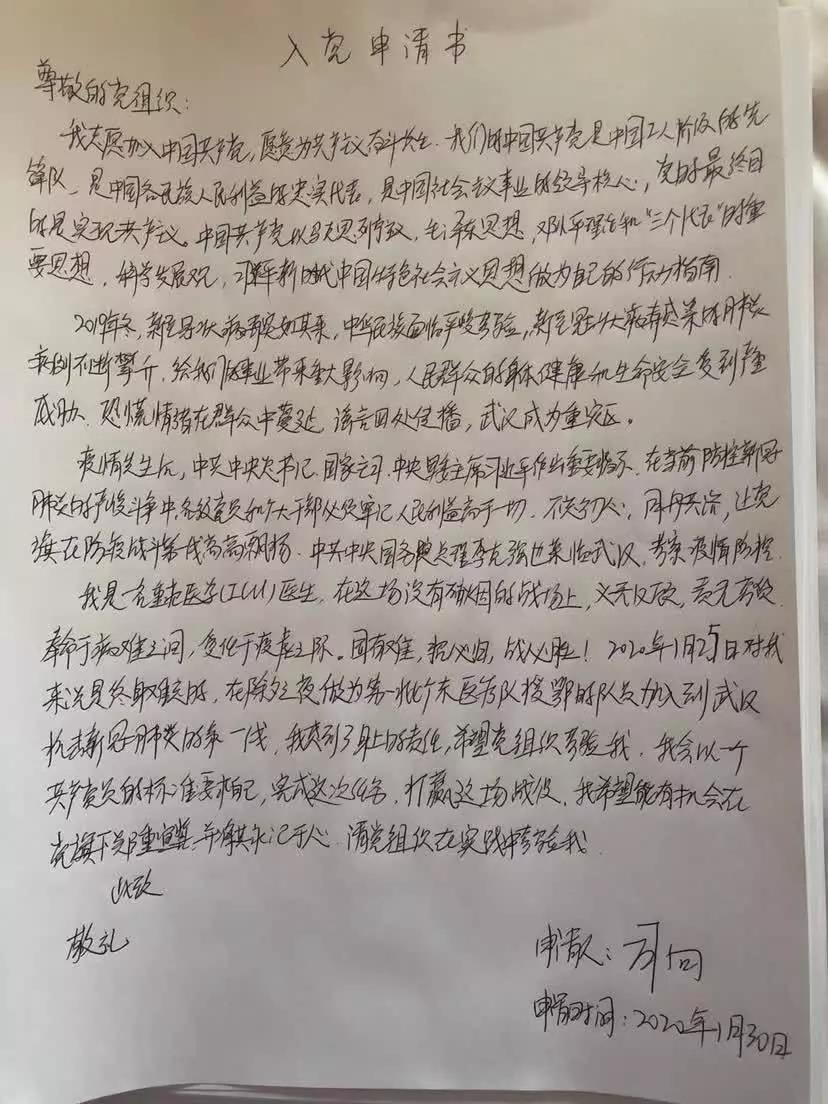 入党申请书
尊敬的党组织：
我志愿加入中国共产党，愿意为共产主义奋斗终生．我们的中国共产党是中国工人阶级的先
锋队、是中国各民族人民利益的忠实代表，是中国社会主义事业的领导核心，党的最终目
的是实现共产主义。中国共产党以马克思列宁主义，毛泽东思想，邓小平理论和“三个代表”的重
要思想，科学发展观，习近平新时代中国特色社会主义思想做为自己的行动指南．
2019年冬，新型冠状病毒突如其来，中华民族面临严峻考验，新型冠状病毒感染的肺炎
病例不断攀升，给我们的事业带来重大影响，人民群众的身体健康和生命安全受到严重
威胁、恐慌情绪在群众中蔓延，谣言四处传播，武汉成为重灾区。
疫情发生后，中共中央总书记、国家主席、中央军委主席习近平作出重要指示，在当前防控新冠
肺炎的严峻斗争中，各级党员和广大干部必须牢记人民利益高于一切．不忘初心，同舟共济，让党
旗在防疫战斗第一线高高飘扬．中共中央国务院总理李克强也来临武汉，考察疫情防控．
我是一名重症医学(ICU)医生，在这场没有硝烟的战场上，义无反顾，责无旁贷
奉命于病难之间，受任于疫虐之际。国有难，招必归，战必胜！2020年1月25日对我
来说是终身难忘的，在除夕之夜做为第一批广东医疗队援鄂的队员加入到武汉
抗击新冠肺炎的第一线，我感到了身上的责任，希望党组织考验我．我会以一个
共产党员的标准要求自己，完成这次任务，打赢这场战役．我希望能有机会在
党旗下郑重宣誓，并将其永记于心．请党组织在实践中考验我．
此致
敬礼
申请人：
申请时间：2020年1月30日